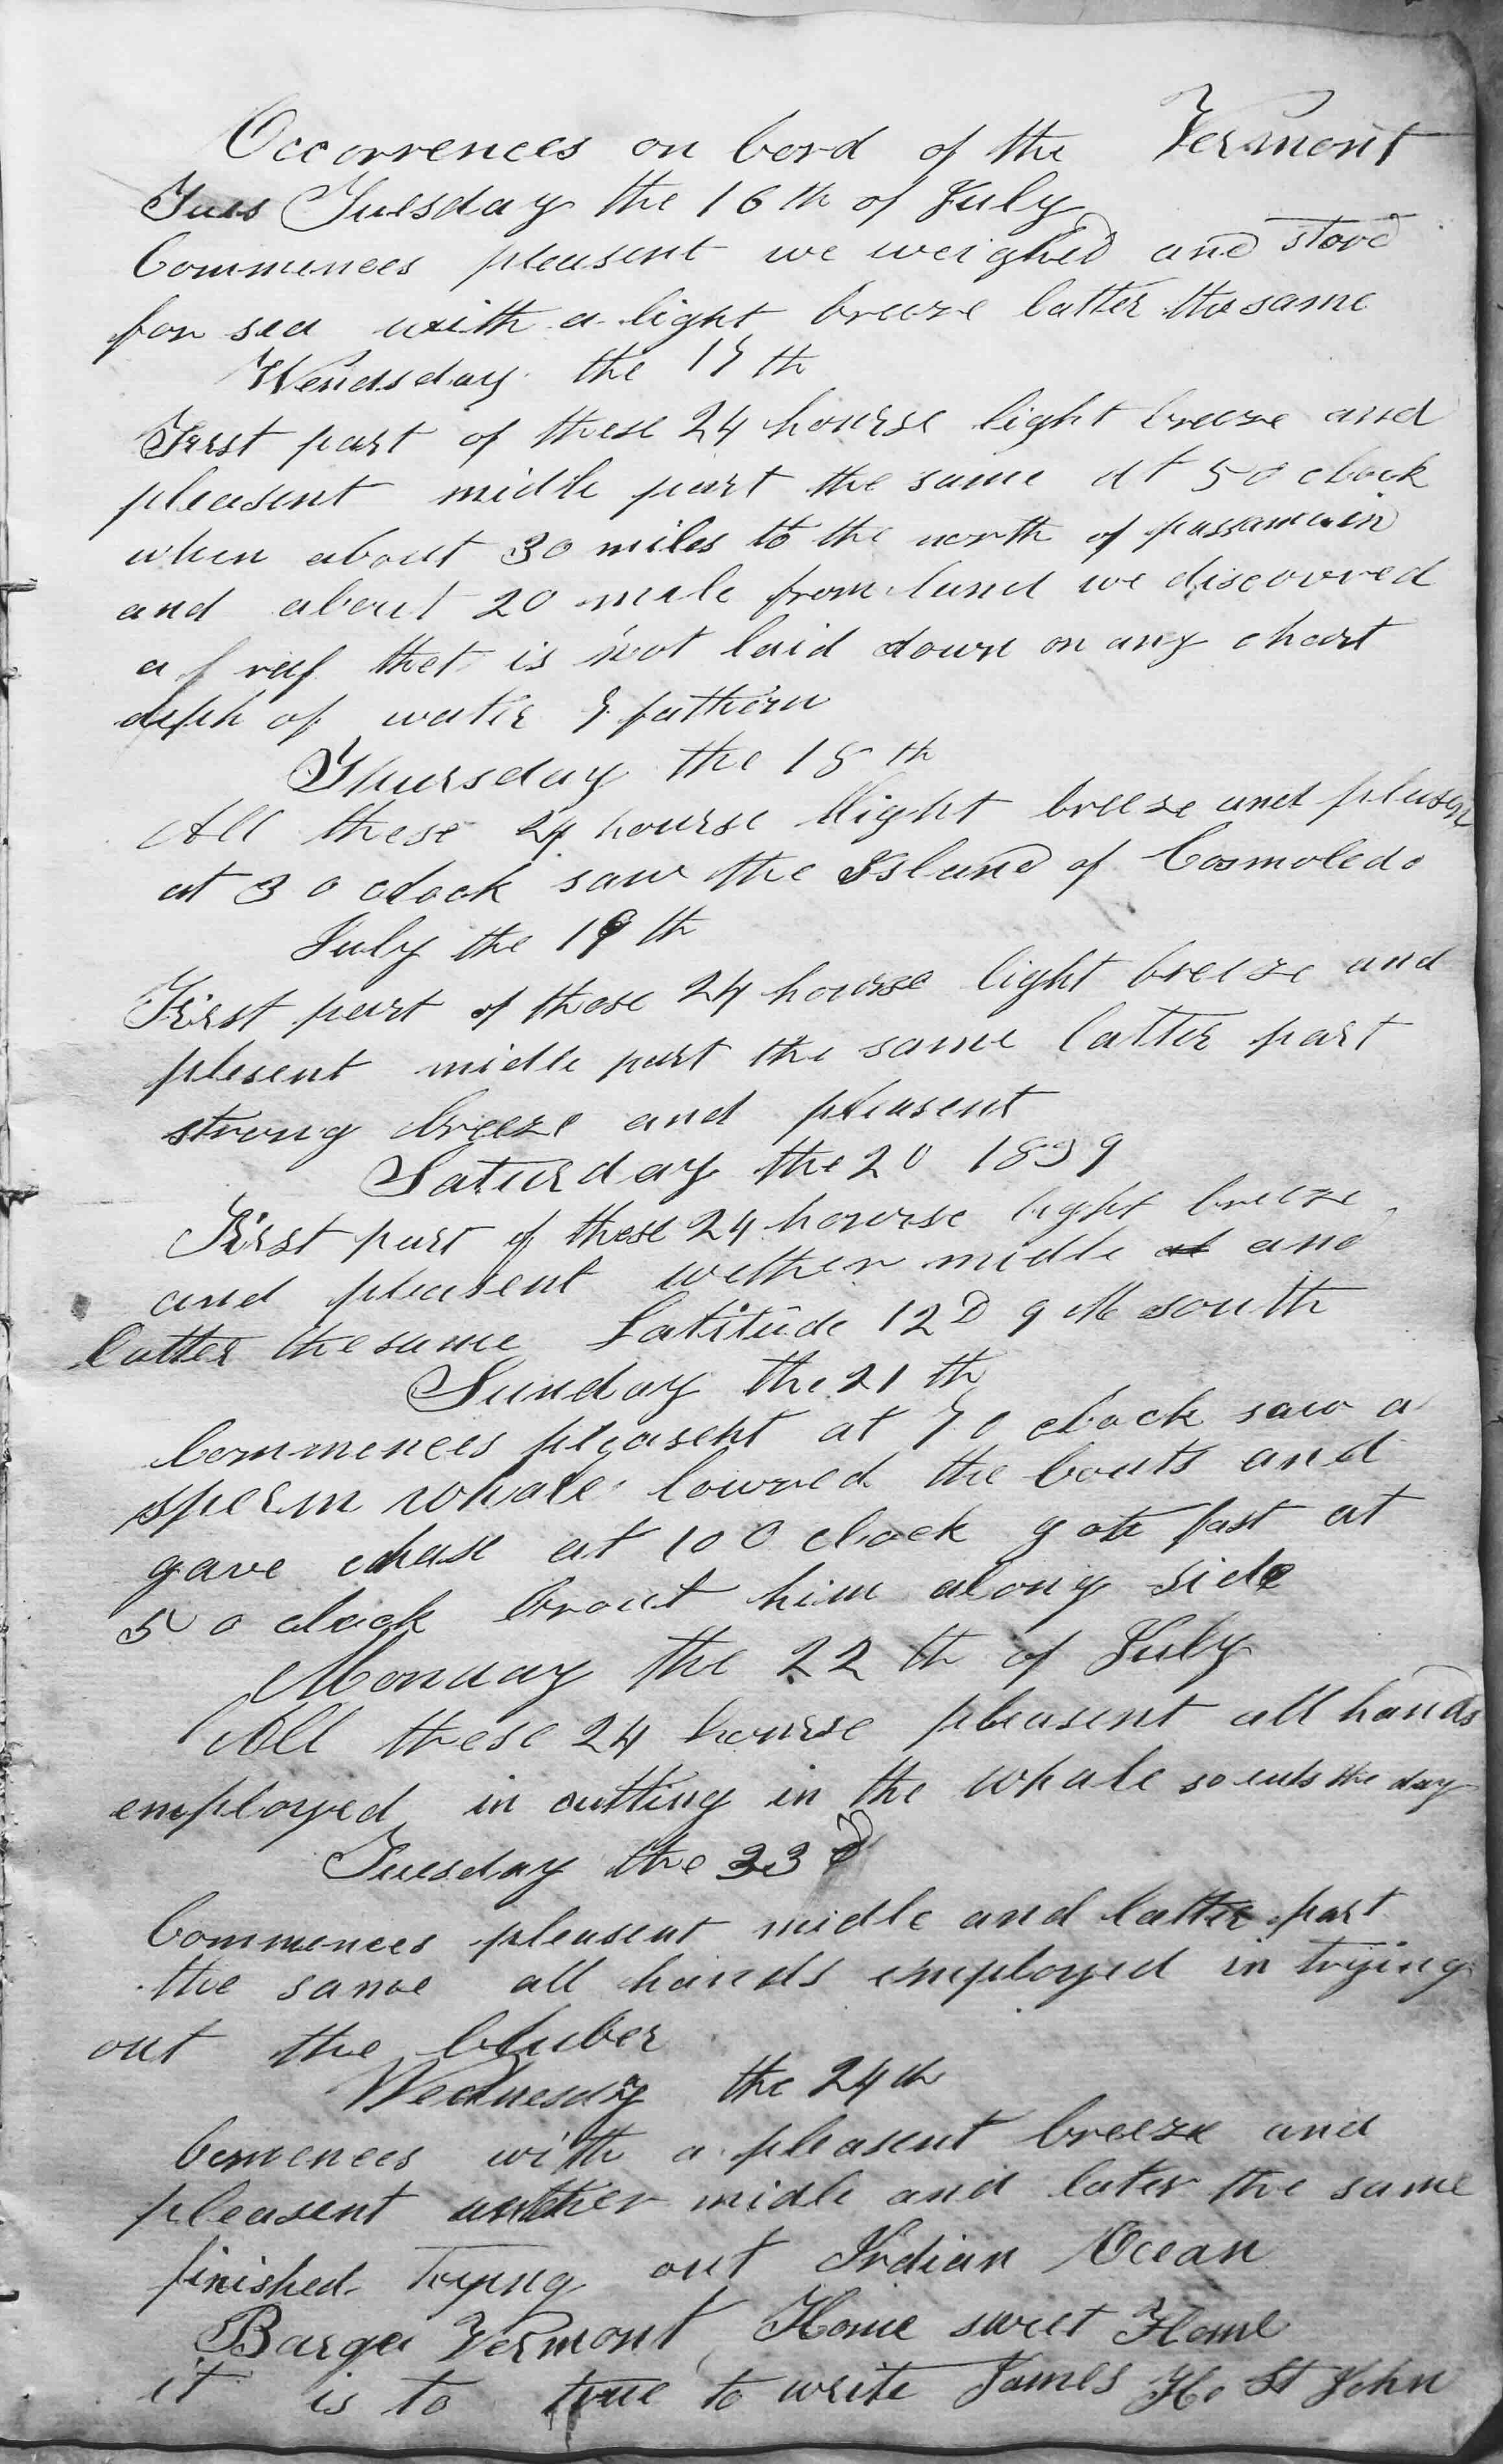 Occorrences on bord of the Vermont
Tues Tuesday the 16th of July
Commences pleasent we weighed and stood
for sea with a light breeze latter the same
Wendsday the 17th
First part of these 24 hourse light breeze and
pleasent midle part the same at 5 o clock
when about 30 miles to the north of
and about 20 mile from land we discovred
a reef thet is not laid down on any chart
deph of water 7 fathem
Thursday the 18th
All these 24 hourse light breeze and pleasen
at 3 o clock saw the Island of Cosmoledo
July the 19th
First part of these 24 hourse light breeze and
plesent midle part the same latter part
strong breeze and pleasent
Saturday the 20 1839
First part of these 24 hourse light breeze
and pleasent wether midle and
latter the same Latitude 12D 9 M south
Sunday the 21th
Commences pleasent at 7 o clock saw a
sperm whale lowred the boats and
gave chase at 10 O clock got fast at
5 o clock brout him along side
Monday the 22th of July
All these 24 hourse pleasent all hands
employed in cutting in the whale so ends the day
Tuesday the 23d
Commences pleasent midle and latter part
the same all hands employed in trying
out the bluber
Wednesday the 24th
Comences with a pleasent breeze and
pleasent wether midle and later the same
finished trying out Indian Ocean
Barque Vermont Home sweet Home
it is to true to write James H. St John